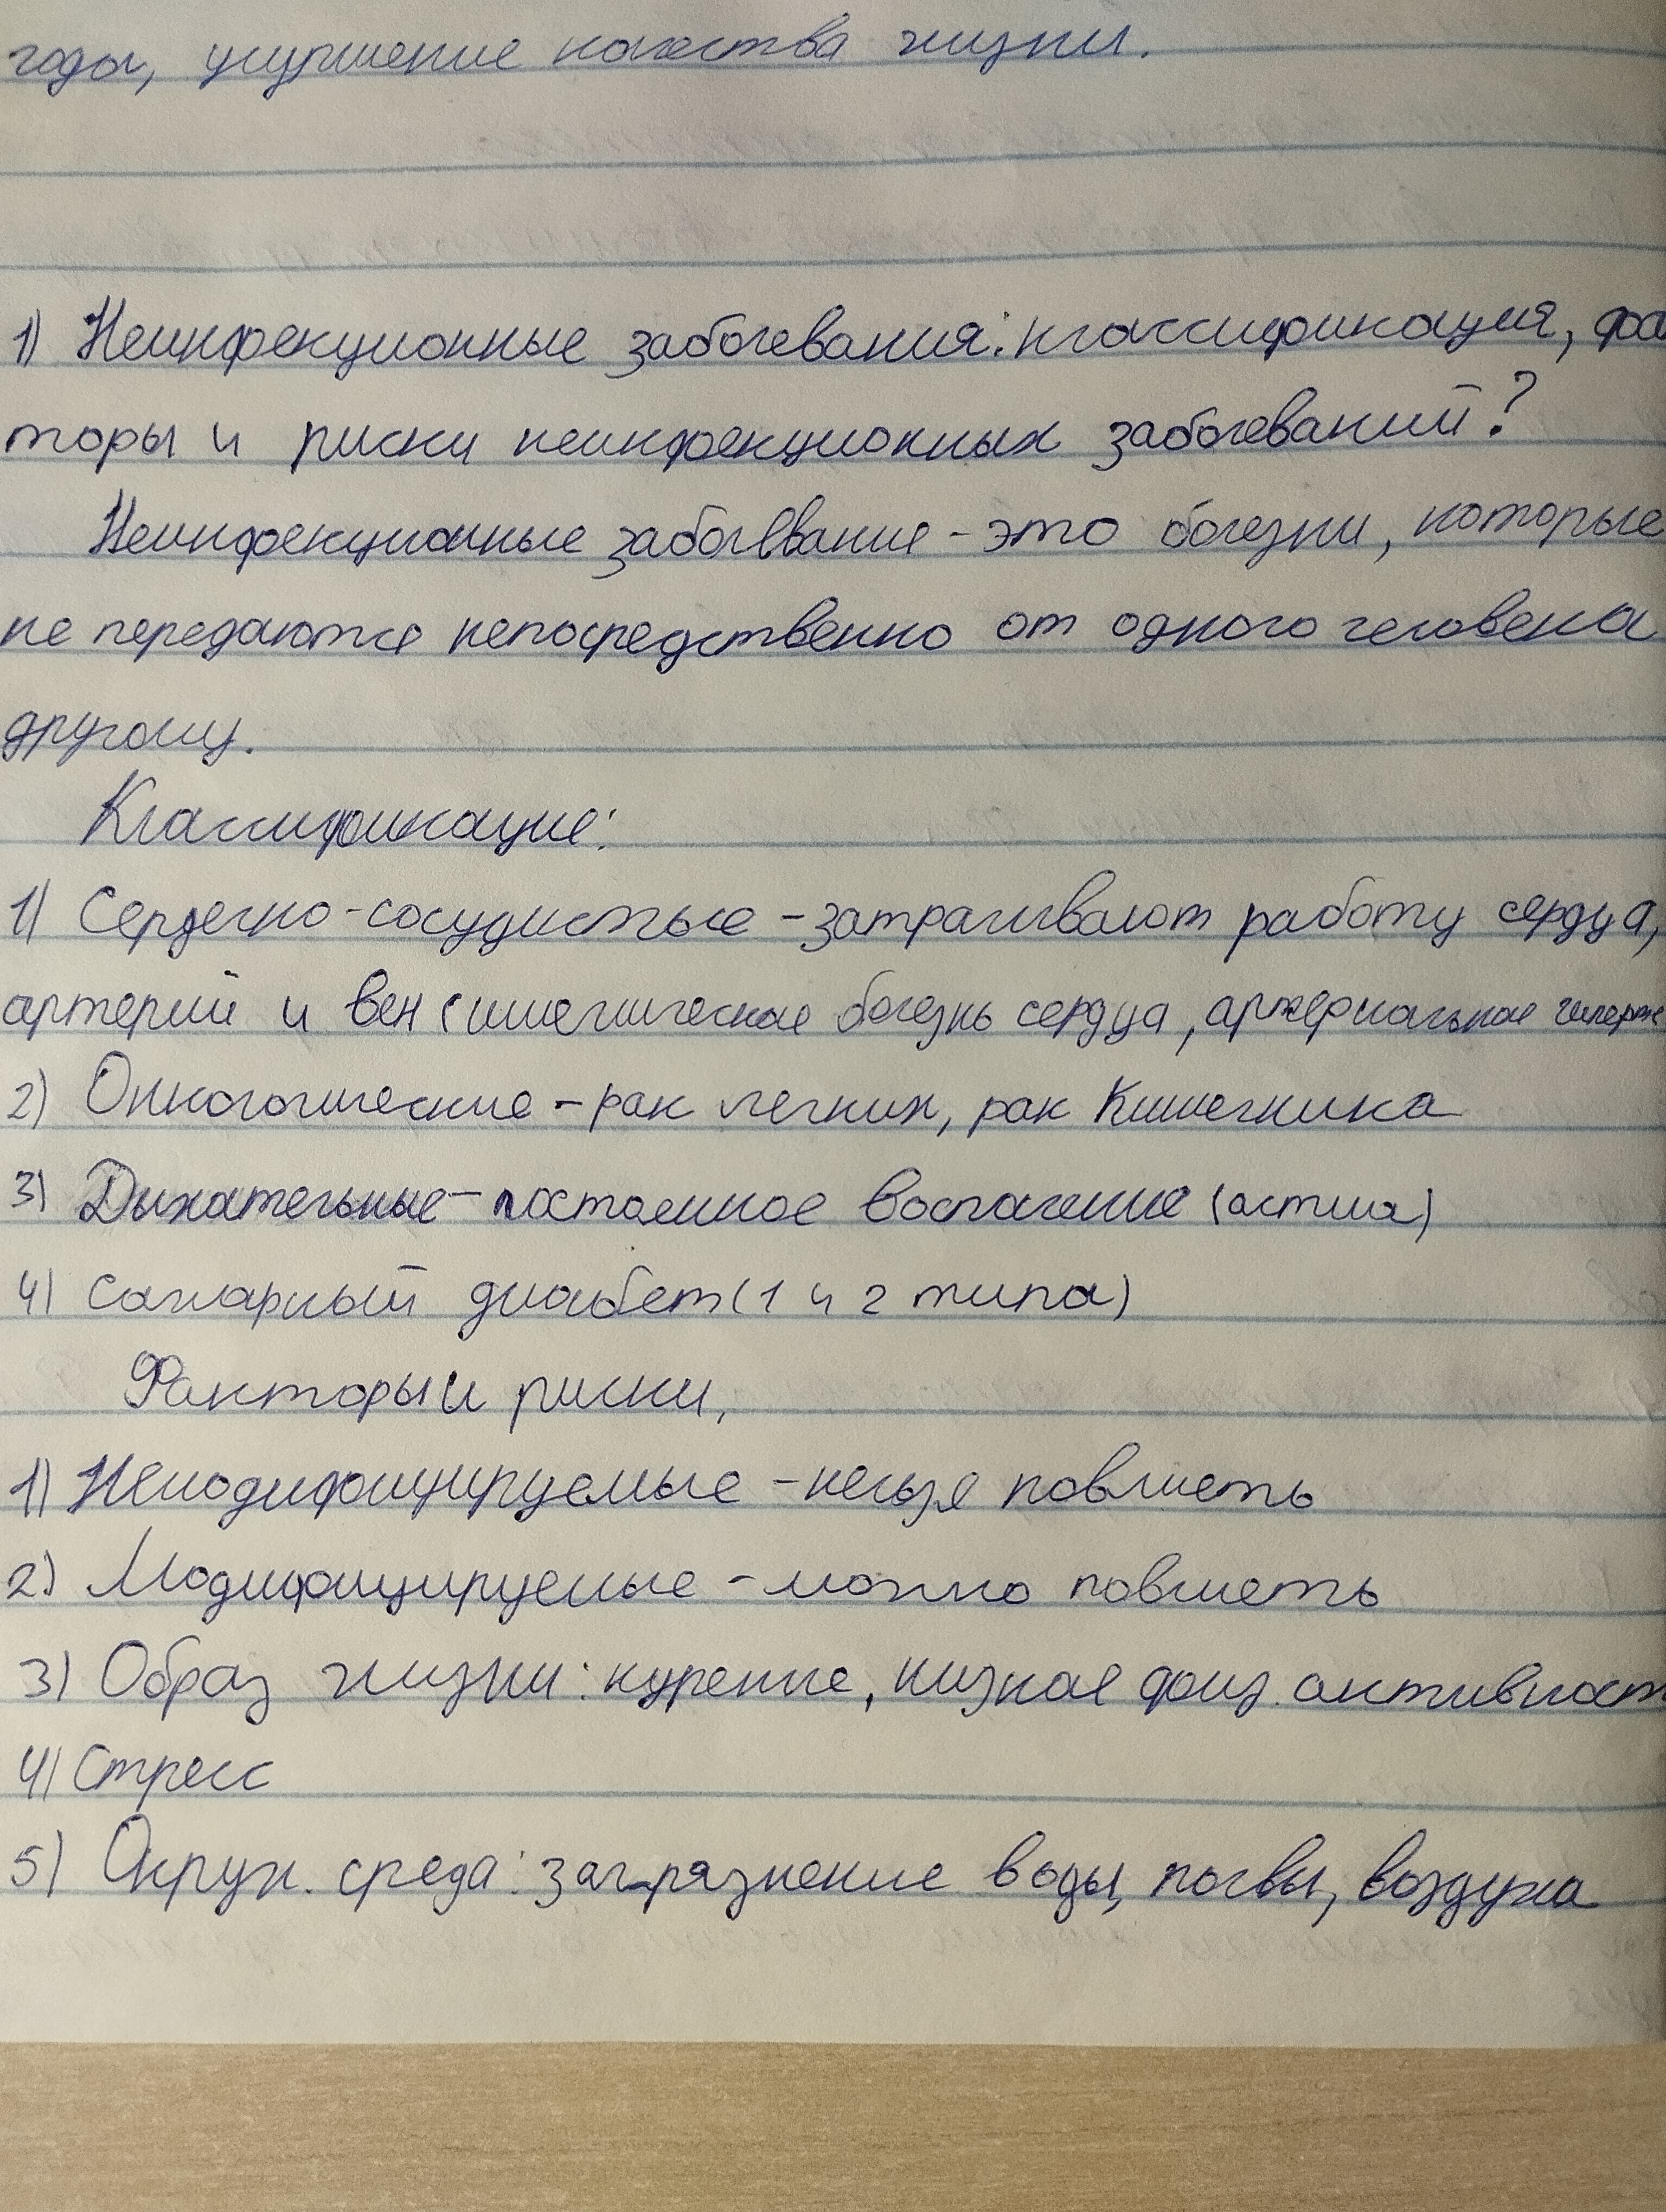 годы, улучшение качества жизни.
1) Неинфекционные заболевания: классификация, фак
торы и риски неинфекционных заболеваний?
Неинфекционные заболевание - это болезни, которые
не передаются непосредственно от одного человека
другому.
Классификация:
1) Сердечно-сосудистые - затрагивают работу сердца,
артерий и вен (ишемическая болезнь сердца, артериальная гиперте
2) Онкологические - рак легких, рак Кишечника
3) Дыхательные - постоянное воспаление (астма)
4) Сахарный диабет (1 и 2 типа)
Факторы и риски,
1) Немодифицируемые - нельзя повлиять
2) Модифицируемые - можно повлиять
3) Образ жизни: курение, низкая физ. активност
4) Стресс
5) Окруж. среда: загрязнение воды, почвы, воздуха